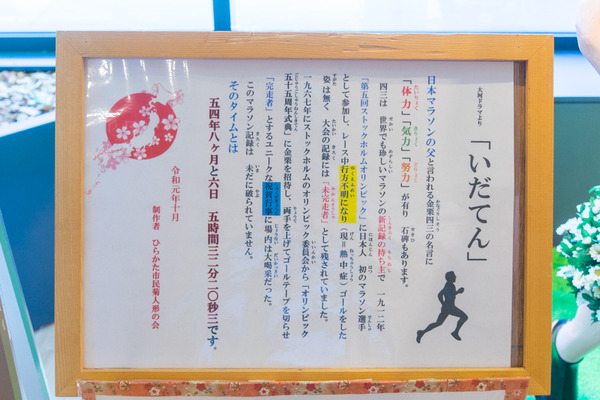 大河ドラマより
「いだてん」
日本マラソンの父と言われる金栗四三の名言に
「体力」「気力」「努力」が有り 石碑もあります。
四三は 世界でも珍しいマラソンの新記録の持ち主で 一九一二年
「第五回ストックホルムオリンピック」に日本人 初のマラソン選手
として参加し、レース中行方不明になり(現=熱中症)ゴールをした
姿は無く 大会の記録には「未完走者」として残されていました。
一九六七年にストックホルムのオリンピック委員会から「オリンピック
五十五周年式典」に金栗を招待し、両手を上げてゴールテープを切らせ
「完走者」とするユニークな祝賀行事に場内は大喝采だった。
このマラソン記録は 未だに破られていません。
そのタイムとは
五四年八ヶ月と六日 五時間三二分二〇秒三です。
令和元年十月
制作者 ひらかた市民菊人形の会